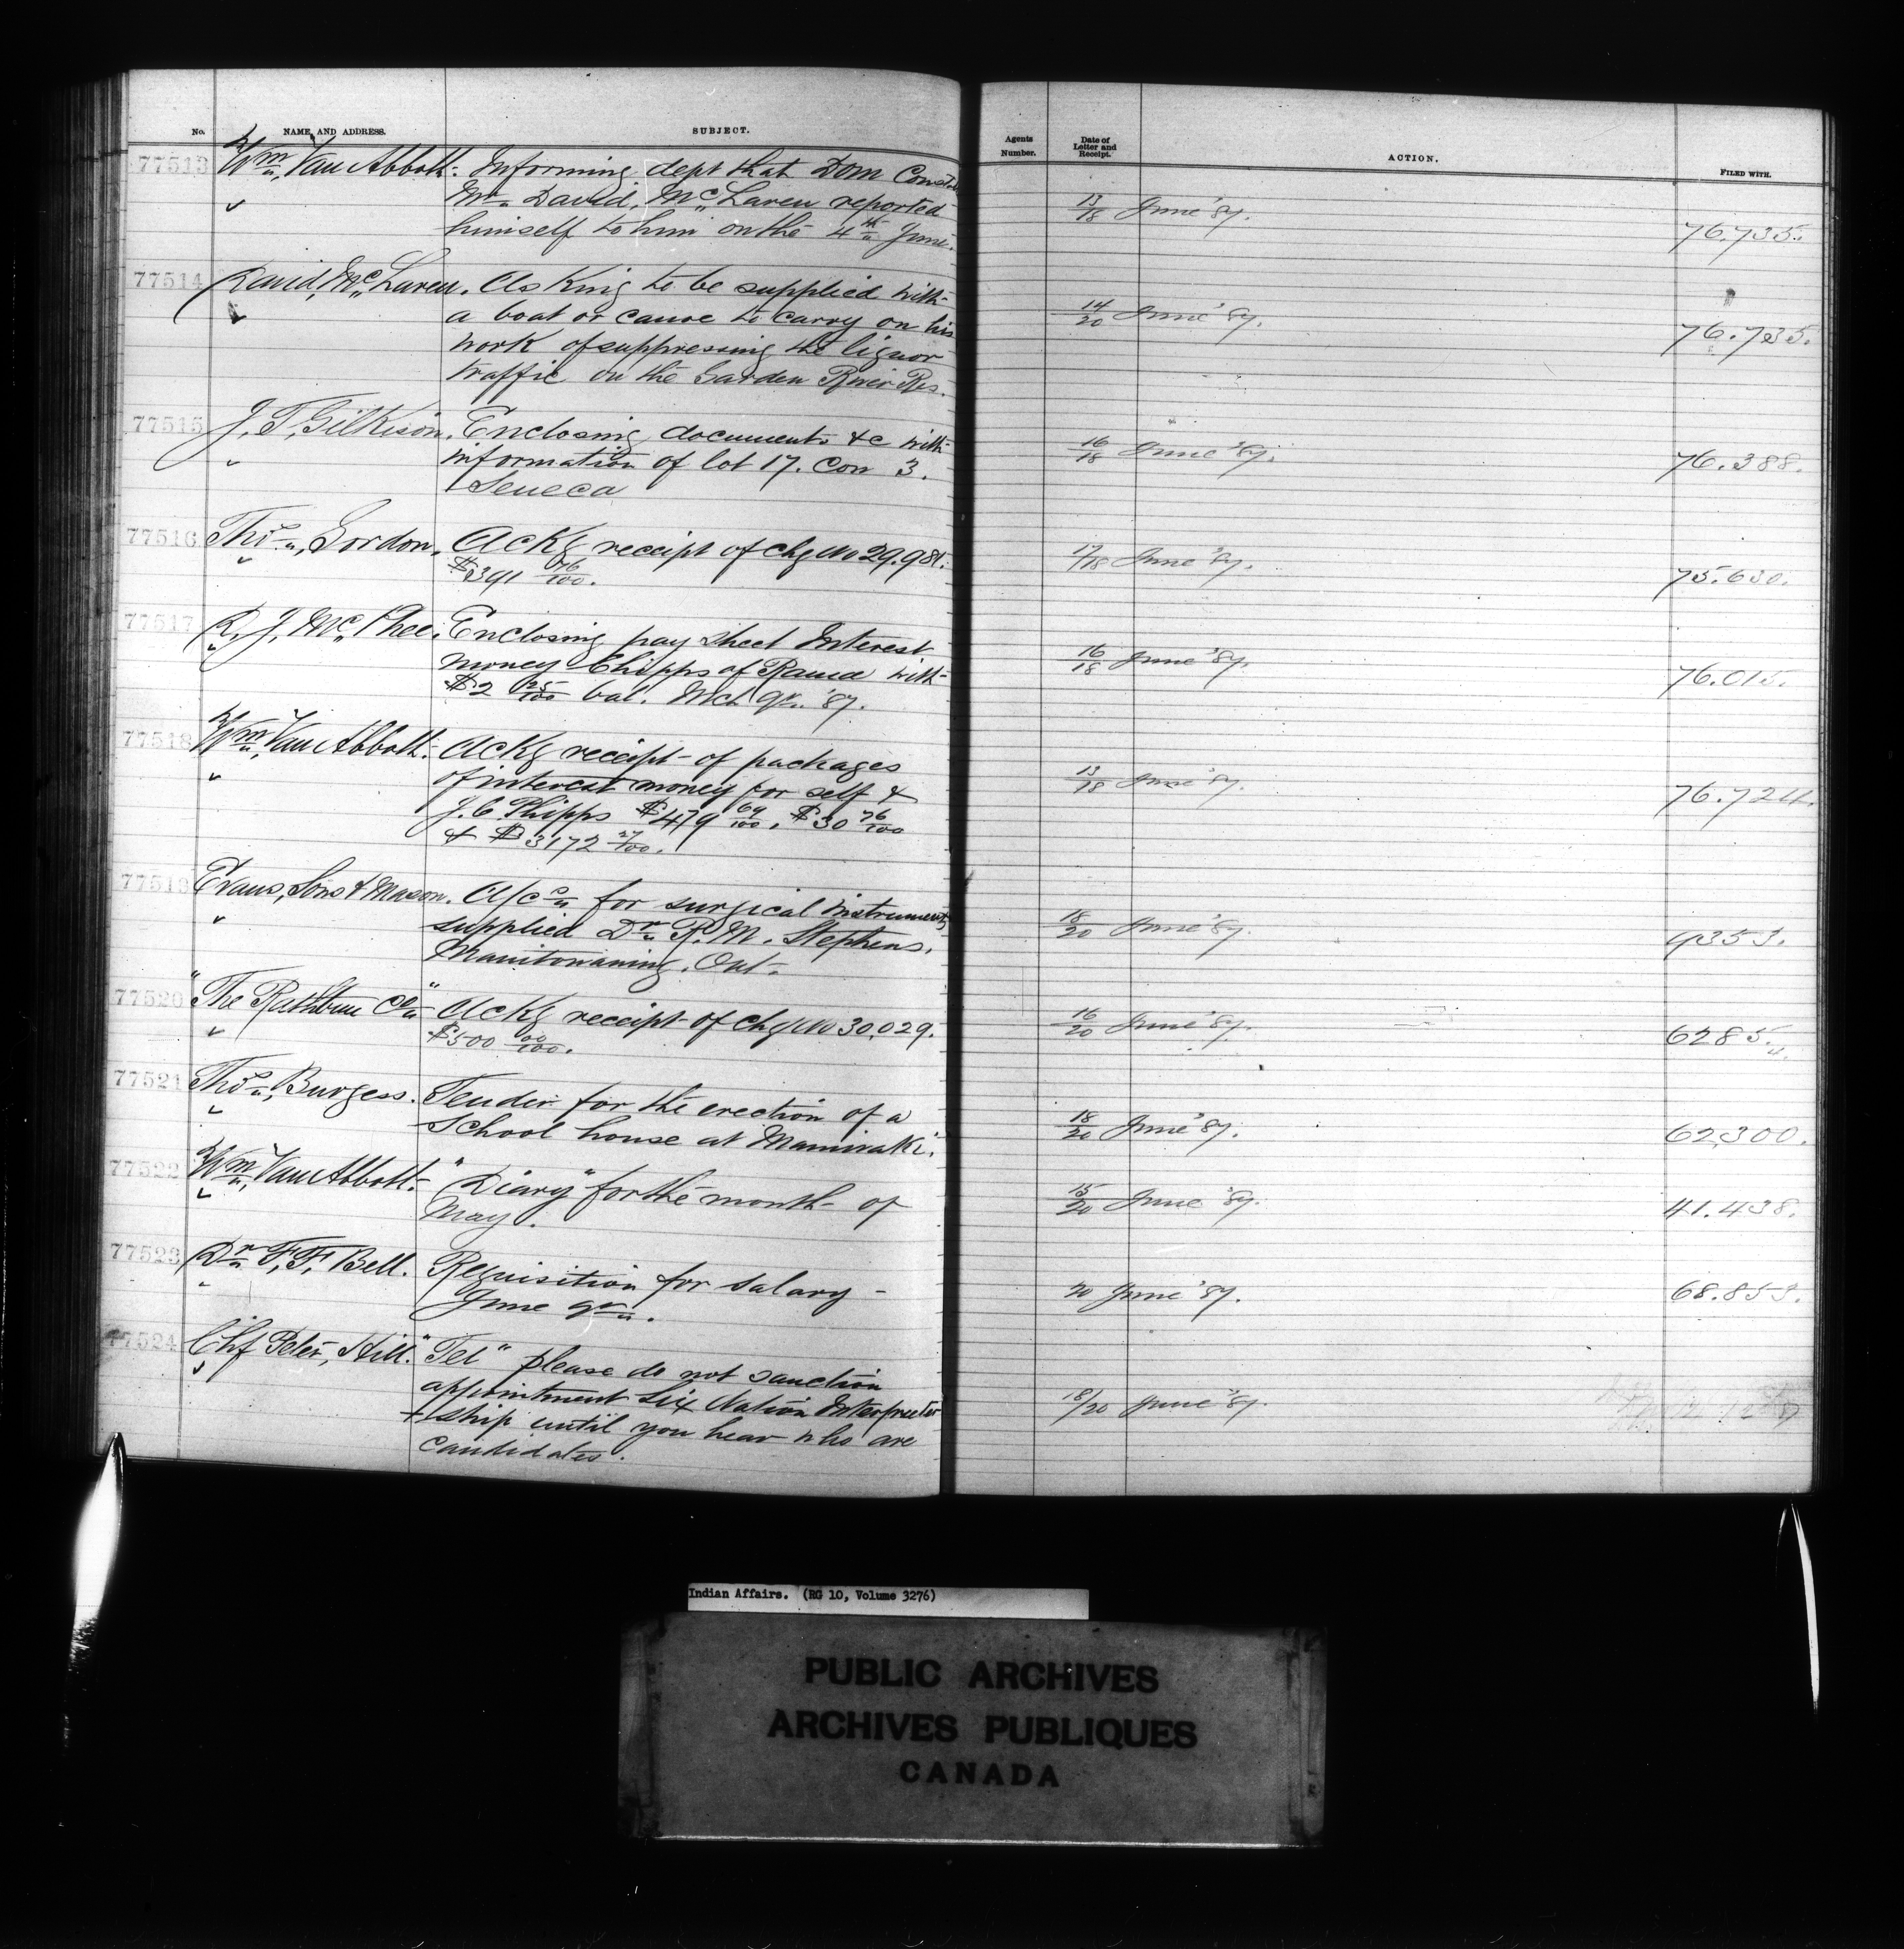 No. NAME AND ADDRESS. SUBJECT.
77513 Wm Van Abbott. Informing dept that Dom Const
Mr David, McLaren reported
himself to him on the 4th June.
77514 David, McLaren. Asking to be supplied with
a boat or canoe to carry on his
work of suppressing the liquor
traffic on the Garden River Res.
77515 J. T. Gilkison. Enclosing documents &c with
information of lot 17. Con 3.
Seneca
77516 Thos, Gordon. Ackg receipt of chq No 29.981.
$391 76/100.
77517 R. J. McPhee. Enclosing pay sheet Interest
money Chipps of Rama with
$2 25/100 bal. Mch Qr '87.
77518 Wm Van Abbott. Ackg receipt of packages
of interest money for self &
J. C. Phipps $479 69/100. $30 76/100
& $3172 27/100.
77519 Evans, Sons & Mason. A/cs for surgical instruments
supplied Dr R. M. Stephens,
Manitowaning, Ont.
77520 "The Rathbun Co" Ackg receipt of chq No 30,029.
$500 00/100.
77521 Thos, Burgess. Tender for the erection of a
School house at Maniwaki.
77522 Wm, Van Abbott. "Diary" for the month of
May.
77523 Dr F. F. Bell. Requisition for salary
June qr.
77524 Chf Peter, Hill. "Tel" please do not sanction
appointment Six Nation Interpreter
ship until you hear who are
candidates.
Agents Number. Date of Letter and Receipt. ACTION. FILED WITH.
13/18 June '87. 76.735.
14/20 June '87. 76.735.
16/18 June '87. 76.388.
17/18 June '87. 75.630.
16/18 June '87. 76.015.
13/18 June '87. 76.724.
18/20 June '87. 9353.
16/20 June '87. 6285.
18/20 June '87. 62,300.
15/20 June '87. 41.438.
20 June '87. 68.853.
18/20 June '87.
Indian Affairs. (RG 10, Volume 3276)
PUBLIC ARCHIVES
ARCHIVES PUBLIQUES
CANADA